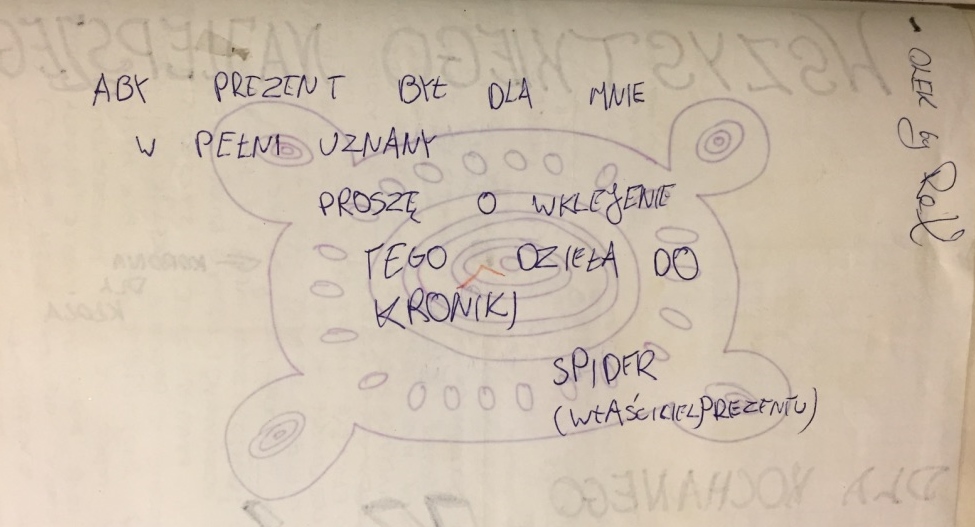 ABY PREZENT BYŁ DLA MNIE
W PEŁNI UZNANY
PROSZĘ O WKLEJENIE
TEGO DZIEŁA DO
KRONIKI
SPIDER
(WŁAŚCICIEL PREZENTU)
OLEK by
WSZYSTKIEGO NAJLEPSZEGO
KORONA
DLA
KRÓLA
DLA KOCHANEGO